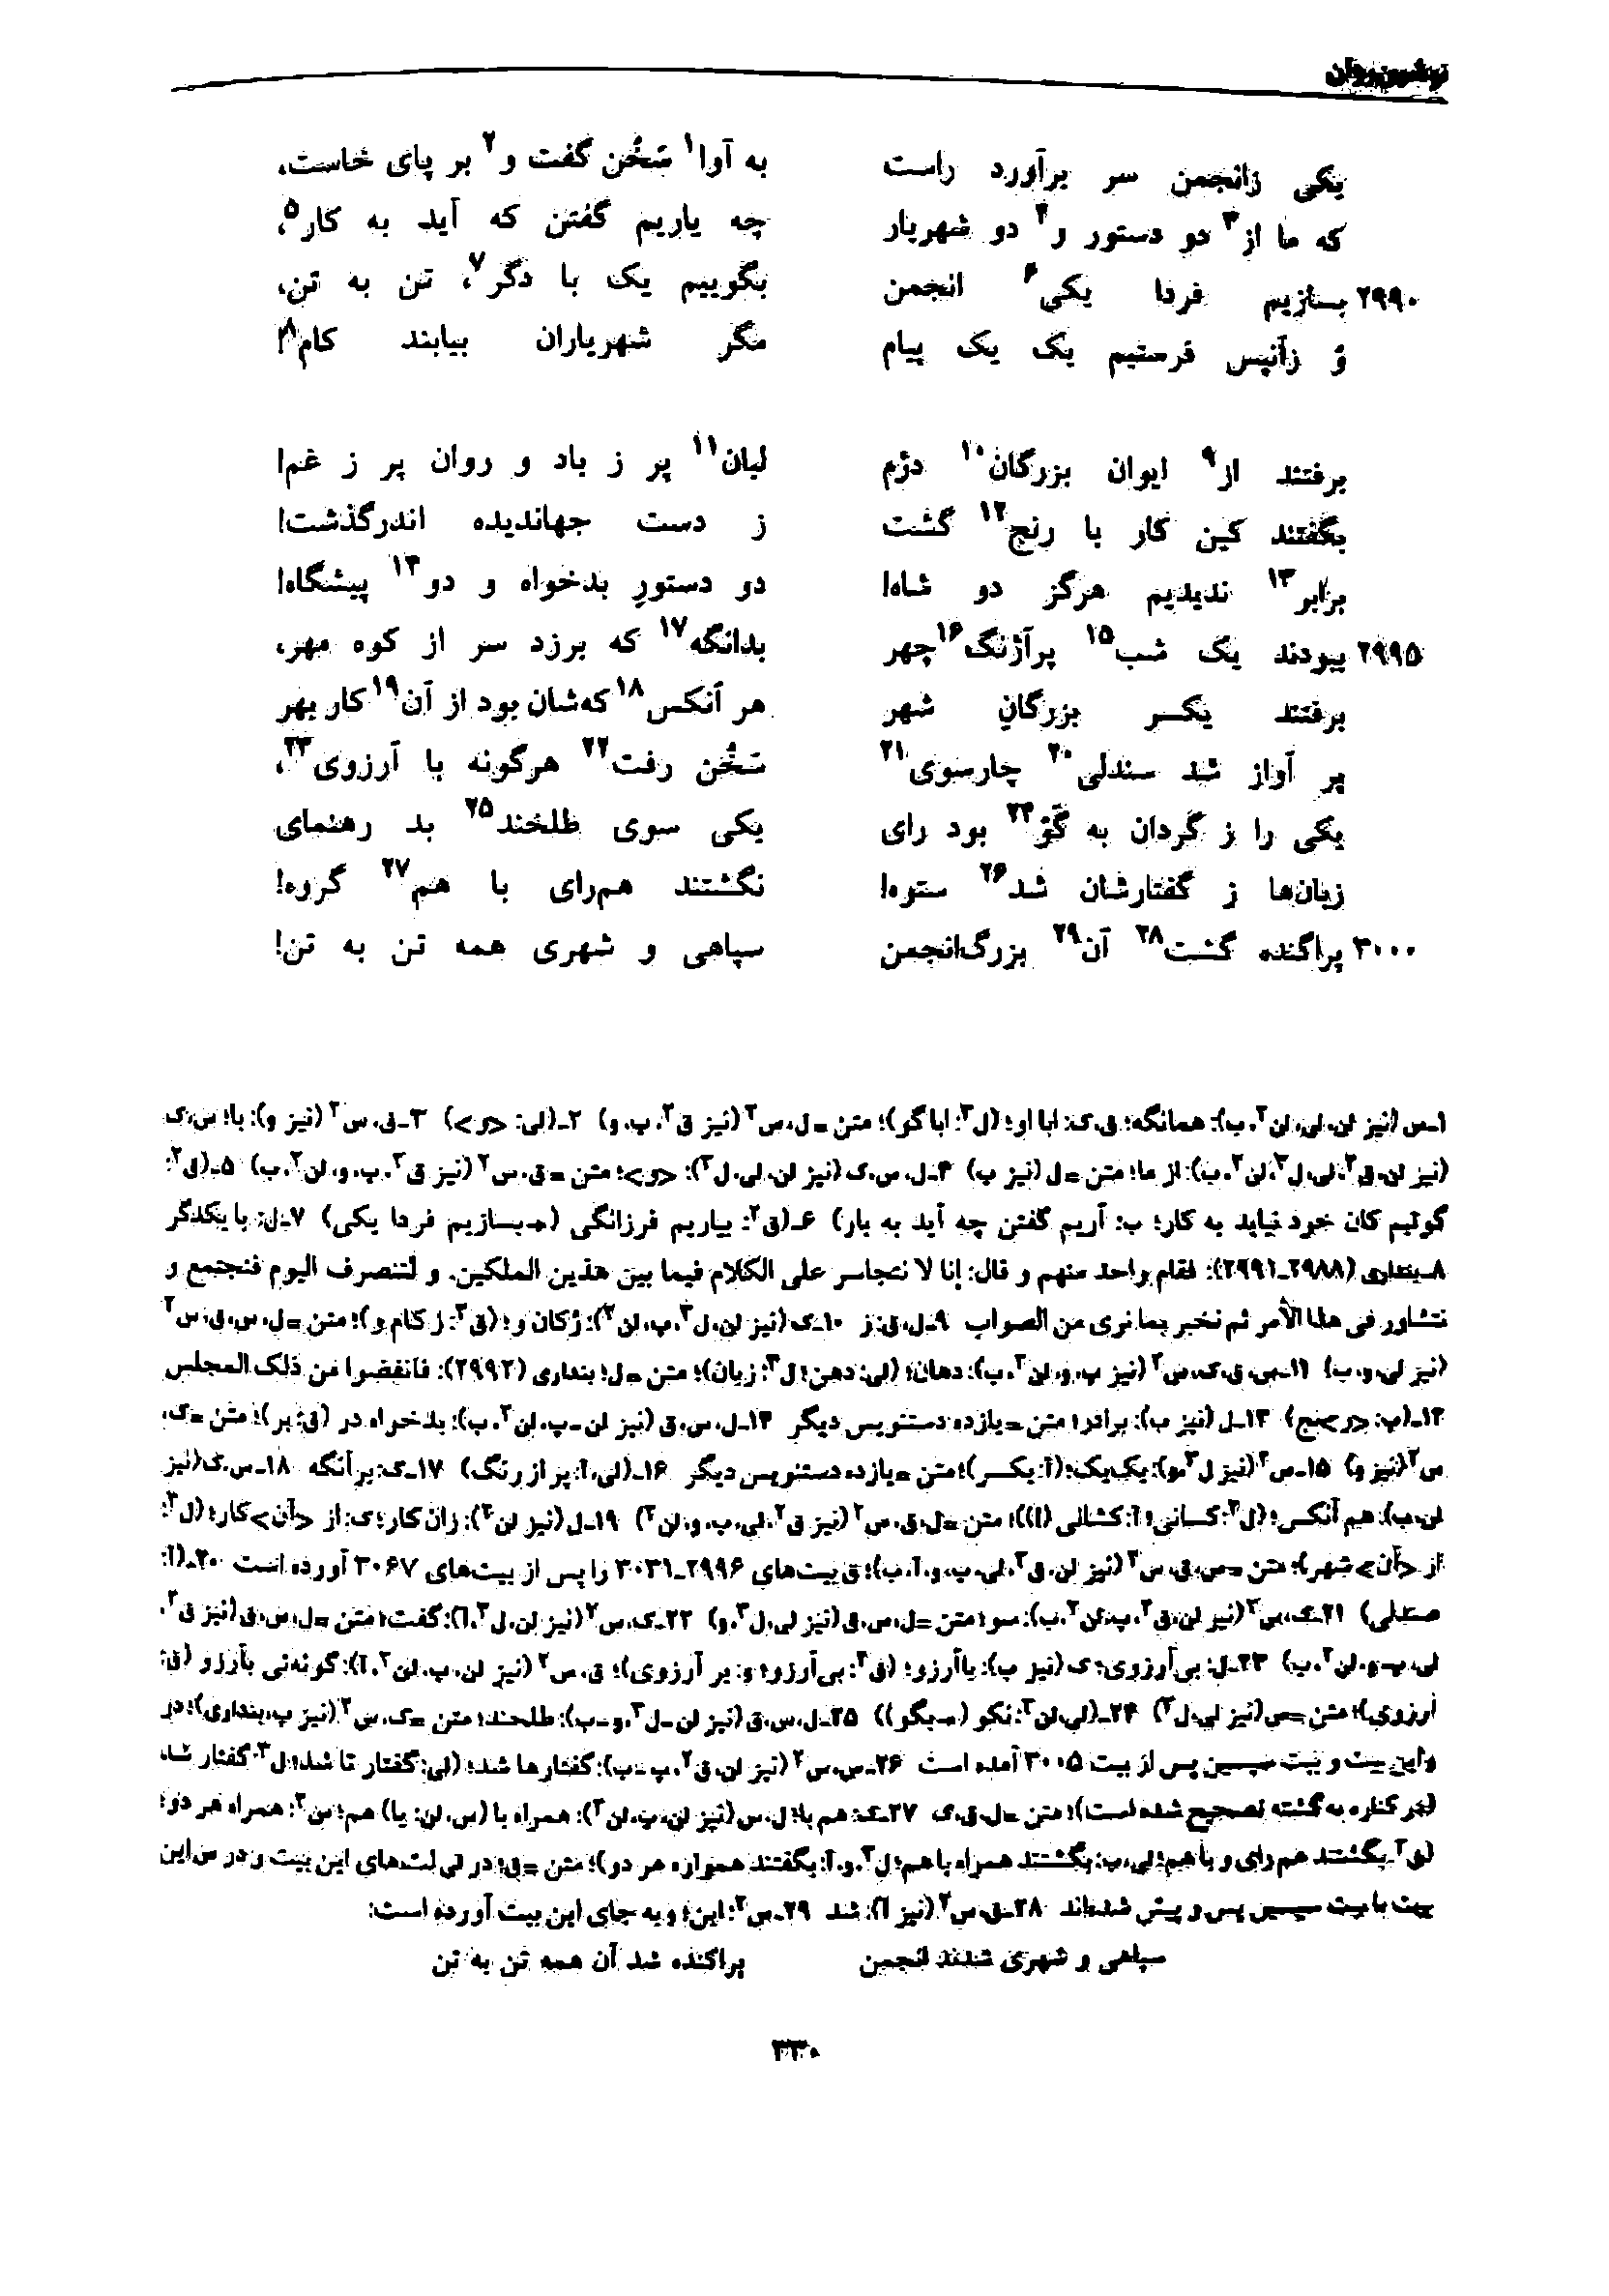 نوشین‌روان
یکی زانجمن سر برآورد راست به آوا۱ سَخُن گفت و۲ بر پای خاست،
که ما از۳ دو دستور و۴ دو شهریار چه یاریم گفتن که آید به کار۵،
۲۹۹۰ بسازیم فردا یکی۶ انجمن بگوییم یک با دگر۷، تن به تن،
وُ زآنپس فرستیم یک یک پیام مگر شهریاران بیابند کام۸!
برفتند از۹ ایوان بزرگان۱۰ دژم لبان۱۱ پر ز باد و روان پر ز غم!
بگفتند کین کار با رنج۱۲ گشت ز دست جهاندیده اندرگذشت!
برابر۱۳ ندیدیم هرگز دو شاه! دو دستورِ بدخواه و دو۱۴ پیشگاه!
۲۹۹۵ ببودند یک شب۱۵ پرآژنگ۱۶ چهر بدانگه۱۷ که برزد سر از کوه مهر،
برفتند یکسر بزرگانِ شهر هر آنکس۱۸ که‌شان بود از آن۱۹ کار بهر
پر آواز شد سندلی۲۰ چارسوی۲۱ سَخُن رفت۲۲ هرگونه با آرزوی۲۳،
یکی را ز گردان به گَو۲۴ بود رای یکی سوی طلخند۲۵ بد رهنمای
زبان‌ها ز گفتارشان شد۲۶ ستوه! نگشتند هم‌رای با هم۲۷ گروه!
۳۰۰۰ پراگنده گشت۲۸ آن۲۹ بزرگ‌انجمن سپاهی و شهری همه تن به تن!
۱ـ س (نیز لن، لی، لن۲، ب): همانگه؛ ق، ک: ابا او؛ (ل۳: ابا گو)؛ متن = ل، س۲ (نیز ق۲، پ، و) ۲ـ (لی: <و>) ۳ـ ق، س۲ (نیز و): با؛ س، ک
(نیز لن، ق۲، لی، ل۳، لن۲، ب): از ما؛ متن = ل (نیز پ) ۴ـ ل، س، ک (نیز لن، لی، ل۳): <و>؛ متن = ق، س۲ (نیز ق۲، پ، و، لن۲، ب) ۵ـ (ق۲:
گوئیم کان خود نیاید به کار؛ ب: آریم گفتن چه آید به بار) ۶ـ (ق۲: بیاریم فرزانگی (← بسازیم فردا یکی) ۷ـ ل: با یکدگر
۸ـ بنداری (۲۹۸۸ـ۲۹۹۱): فقام واحد منهم و قال: إنا لا نتجاسر علی الکلام فیما بین هذین الملکین. و لننصرف الیوم فنجتمع و
نتشاور فی هذا الأمر ثم نخبر بما نری من الصواب ۹ـ ل، ق: ز ۱۰ـ ک (نیز لن، ل۳، پ، لن۲): ژکان و؛ (ق۲: ز کام و)؛ متن = ل، س، ق، س۲
(نیز لی، و، ب) ۱۱ـ س، ق، ک، س۲ (نیز پ، و، لن۲، ب): دهان؛ (لی: دهن؛ ل۳: زبان)؛ متن = ل؛ بنداری (۲۹۹۲): فانفضوا عن ذلک المجلس
۱۲ـ (پ: <ر>نج) ۱۳ـ ل (نیز ب): برادر؛ متن = یازده دستنویس دیگر ۱۴ـ ل، س، ق (نیز لن ـ پ، لن۲، ب): بدخواه در (ق: بر)؛ متن = ک،
س۲ (نیز و) ۱۵ـ س۲ (نیز ل۳، و): یک‌یک؛ (آ: یکسر)؛ متن = یازده دستنویس دیگر ۱۶ـ (لی، آ: پر از رنگ) ۱۷ـ ک: برآنگه ۱۸ـ س، ک (نیز
لن، ب): هم آنکس؛ (ل۳: کسانی؛ آ: کشالی (!))؛ متن = ل، ق، س۲ (نیز ق۲، لی، پ، و، لن۲) ۱۹ـ ل (نیز لن۲): زان کار؛ ک: از <آن> کار؛ (ل۳:
از <آن> شهر)؛ متن = س، ق، س۲ (نیز لن، ق۲، لی، پ، و، آ، ب)؛ ق بیت‌های ۲۹۹۶ـ۳۰۳۱ را پس از بیت‌های ۳۰۶۷ آورده است ۲۰ـ (آ:
صندلی) ۲۱ـ ک، س۲ (نیز لن، ق۲، پ، لن۲، ب): سو؛ متن = ل، س، ق (نیز لی، ل۳، و) ۲۲ـ ک، س۲ (نیز لن، ل۳، آ): گفت؛ متن = ل، س، ق (نیز ق۲،
لی، پ ـ و، لن۲، ب) ۲۳ـ ل: بی‌آرزوی؛ ک (نیز پ): یاآرزو؛ (ق۲: بی‌آرزو؛ و: بر آرزوی)؛ ق، س۲ (نیز لن، پ، لن۲، آ): گونه‌ئی بآرزو (ق:
آرزوی)؛ متن = س (نیز لی، ل۳) ۲۴ـ (لی، لن۲: نکو (← بگو)) ۲۵ـ ل، س، ق (نیز لن ـ ل۳، و ـ ب): طلحند؛ متن = ک، س۲ (نیز پ، بنداری)؛ در
و این بیت و بیت سپسین پس از بیت ۳۰۰۵ آمده است ۲۶ـ س، س۲ (نیز لن، ق۲، پ ـ ب): گفتارها شد؛ (لی: گفتار تا شد؛ ل۳: گفتار شاه
(در کناره به گشته تصحیح شده است)؛ متن = ل، ق، ک ۲۷ـ ک: هم با؛ ل، س (نیز لن، پ، لن۲): همراه با (س، لن: یا) هم؛ س۲: همراه هر دو؛
(ق۲: بگشتند هم رای و با هم؛ لی، ب: بگشتند همراه با هم؛ ل۳، و، آ: بگفتند همواره هر دو)؛ متن = ق؛ در لی لت‌های این بیت و در س این
بیت با بیت سپسین پس و پیش شده‌اند ۲۸ـ ق، س۲ (نیز آ): شد ۲۹ـ س۲: این؛ و به جای این بیت آورده است:
سپاهی و شهری شدند انجمن پراکنده شد آن همه تن به تن
۳۳۰